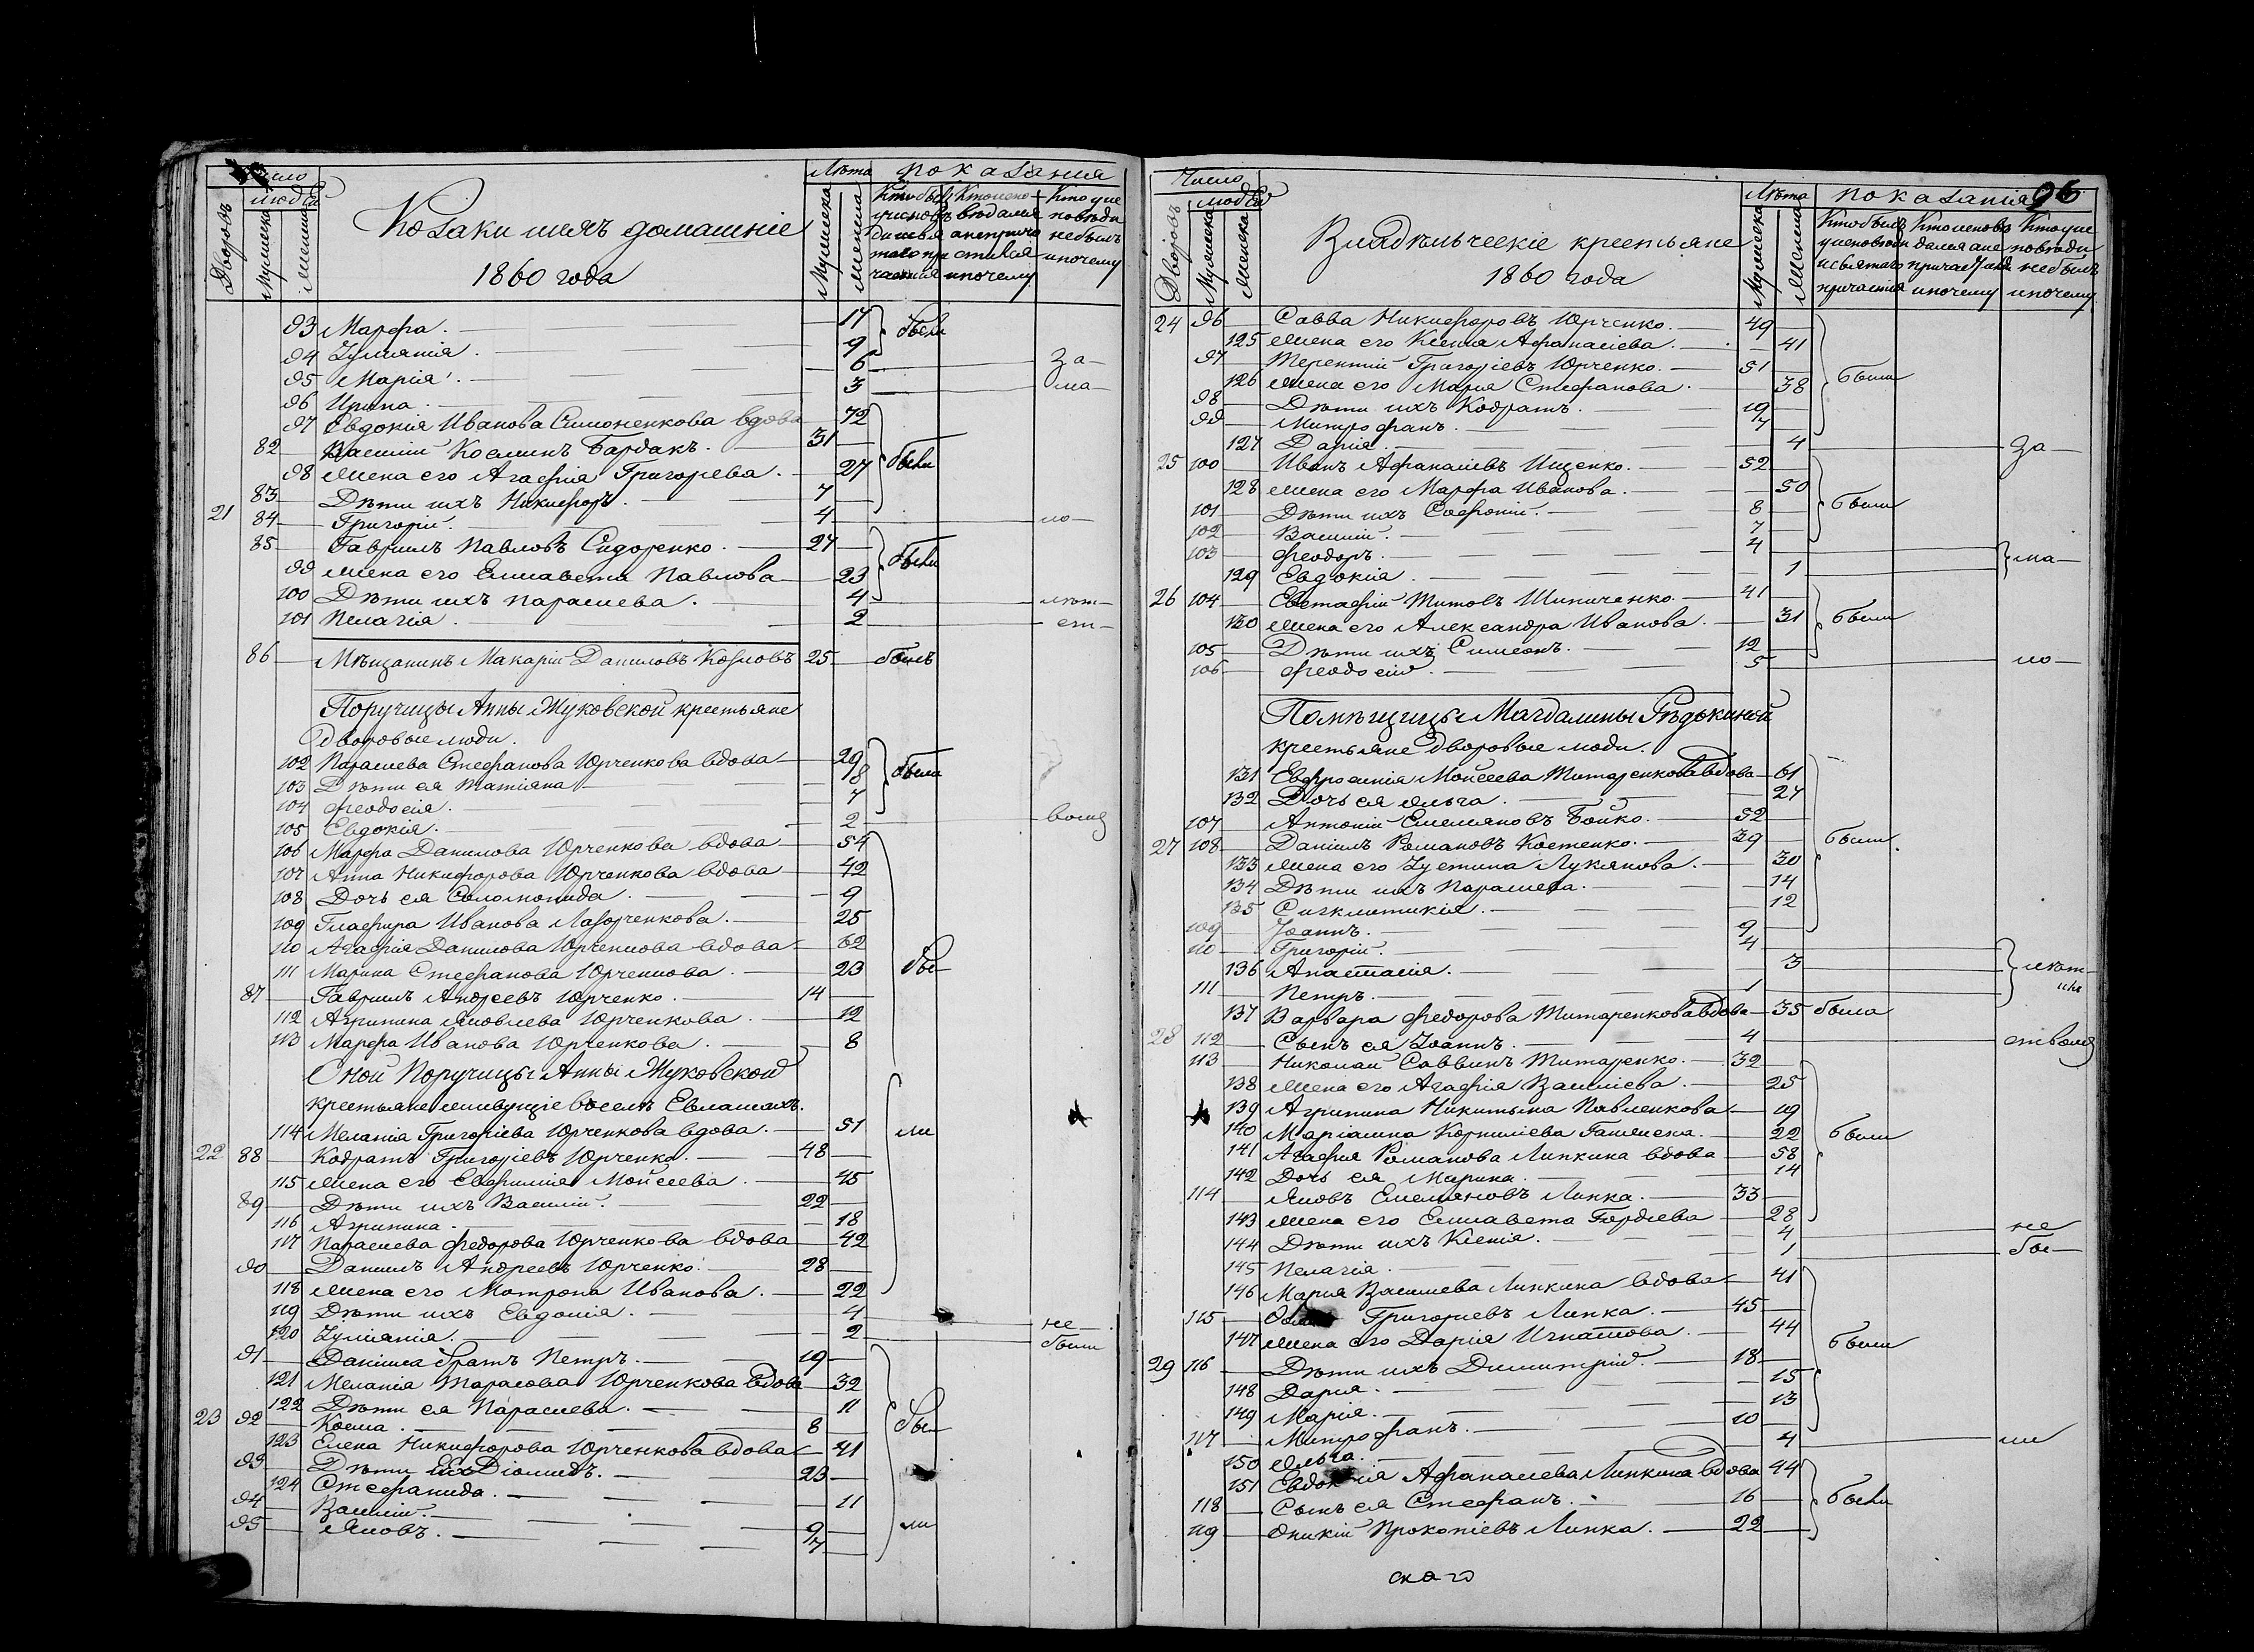 Число
людей
Дворовъ
Мужеска
Женска
Козаки ихъ домашніе
1860 года
Лѣта
Мужеска
Женска
Показанія
93 Марфа. 17 были
94 Іуліанія. 9
95 Марія. 6 за-
96 Ирина. 3 ма-
97 Евдокія Иванова Симоненкова вдова 72
82 Василій Косминъ Бардакъ. 31
98 Жена его Агафія Григорьева. 27 были
83 Дѣти ихъ Никифоръ. 7
21 84 Григорій. 4 ло-
85 Гавріилъ Павловъ Сидоренко. 27
99 Жена его Елисавета Павлова 23 были
100 Дѣти ихъ Параскева. 4 лѣт-
101 Пелагія. 2 ст-
86 Мѣщанинъ Макарій Даниловъ Козловъ 25 былъ
Поручицы Анны Жуковской крестьяне
Дворовые люди.
102 Параскева Стефанова Юрченкова вдова 29
103 Дѣти ея Татіяна 8 были
104 Феодосія. 7
105 Евдокія. 2 вомъ
106 Марфа Данилова Юрченкова вдова 54
107 Анна Никифорова Юрченкова вдова 42
108 Дочь ея Соломонида. 9
109 Глафира Иванова Лазорченкова. 25
110 Агафія Данилова Юрченкова вдова 62
111 Марина Стефанова Юрченкова. 23 бы-
87 Гавріилъ Андреевъ Юрченко. 14
112 Агрипина Яковлева Юрченкова. 12
113 Марфа Иванова Юрченкова. 8
Оной Поручицы Анны Жуковской
крестьяне живущіе въ селѣ Евлашахъ.
114 Меланія Григоріева Юрченкова вдова. 51 ли
22 88 Кодратъ Григоріевъ Юрченко. 48
115 Жена его Евфимія Мойсеева. 45
89 Дѣти ихъ Василій. 22
116 Агрипина. 18
117 Параскева Федорова Юрченкова вдова 42
90 Даніилъ Андреевъ Юрченко. 28
118 Жена его Матрона Иванова. 22
119 Дѣти ихъ Евдокія. 4 не
120 Іуліанія. 2 были
91 Даніила братъ Петръ. 19
121 Меланія Тарасова Юрченкова вдова 32
122 Дѣти ея Параскева. 11
23 92 Косма. 8 бы-
123 Елена Никифорова Юрченкова вдова 41
93 Дѣти ихъ Діомидъ. 23
124 Стефанида. 11
94 Василій. 9 ли
95 Яковъ. 7
96
Число
людей
Дворовъ
Мужеска
Женска
Владѣльческіе крестьяне
1860 года
Лѣта
Мужеска
Женска
Показанія
24 96 Савва Никифоровъ Юрченко. 49
125 Жена его Ксенія Афанасіева. 41
97 Терентій Григоріевъ Юрченко. 51 были
126 Жена его Марія Стефанова. 38
98 Дѣти ихъ Кодратъ. 19
99 Митрофанъ. 7
127 Дарія. 4 за-
25 100 Иванъ Афанасіевъ Ищенко. 52
128 Жена его Марфа Иванова. 50
101 Дѣти ихъ Софроній. 8 были
102 Василій. 7
103 Феодоръ. 4 ма-
129 Евдокія. 1
26 104 Евстафій Титовъ Шиниченко. 41
130 Жена его Александра Иванова. 31 были
105 Дѣти ихъ Симеонъ. 12
106 Феодосій. 5 ло-
Помѣщицы Магдалины Рѣдькиной
крестьяне Дворовые люди.
131 Евфросинія Мойсеева Титаренкова вдова 61
132 Дочь ея Ольга. 27
107 Антоній Емеляновъ Бойко. 52
27 108 Даніилъ Романовъ Костенко. 39 были
133 Жена его Іустина Лукянова. 30
134 Дѣти ихъ Параскева. 14
135 Сигклитикія. 12
109 Іоаннъ. 9
110 Григорій. 4
136 Анастасія. 3 лѣт-
111 Петръ. 1
137 Варвара Федорова Титаренкова вдова 35 была
28 112 Сынъ ея Іоаннъ. 4 ствомъ
113 Николай Саввинъ Титаренко. 32
138 Жена его Агафія Василіева. 25
139 Агрипина Никитина Павленкова 19
140 Маріамна Корнилієва Гашенкова. 22 были
141 Агафія Романова Липкина вдова 58
142 Дочь ея Марина. 14
114 Яковъ Емельяновъ Липка. 33
143 Жена его Елисавета Гордѣева 28
144 Дѣти ихъ Ксенія. 4 не
145 Пелагія. 1 бы-
146 Марія Василиева Липкина вдова 41
115 Григорьевъ Липка. 45
147 Жена его Дарія Игнатова. 44 были
29 116 Дѣти ихъ Димитрій. 18
148 Дарія. 15
149 Марія. 13
117 Митрофанъ. 10
150 Ольга. 4 ли
151 Евдокія Афанасиева Липкина вдова 44
118 Сынъ ея Стефанъ. 16 были
119 Оникій Прокопіевъ Липка. 22
ского